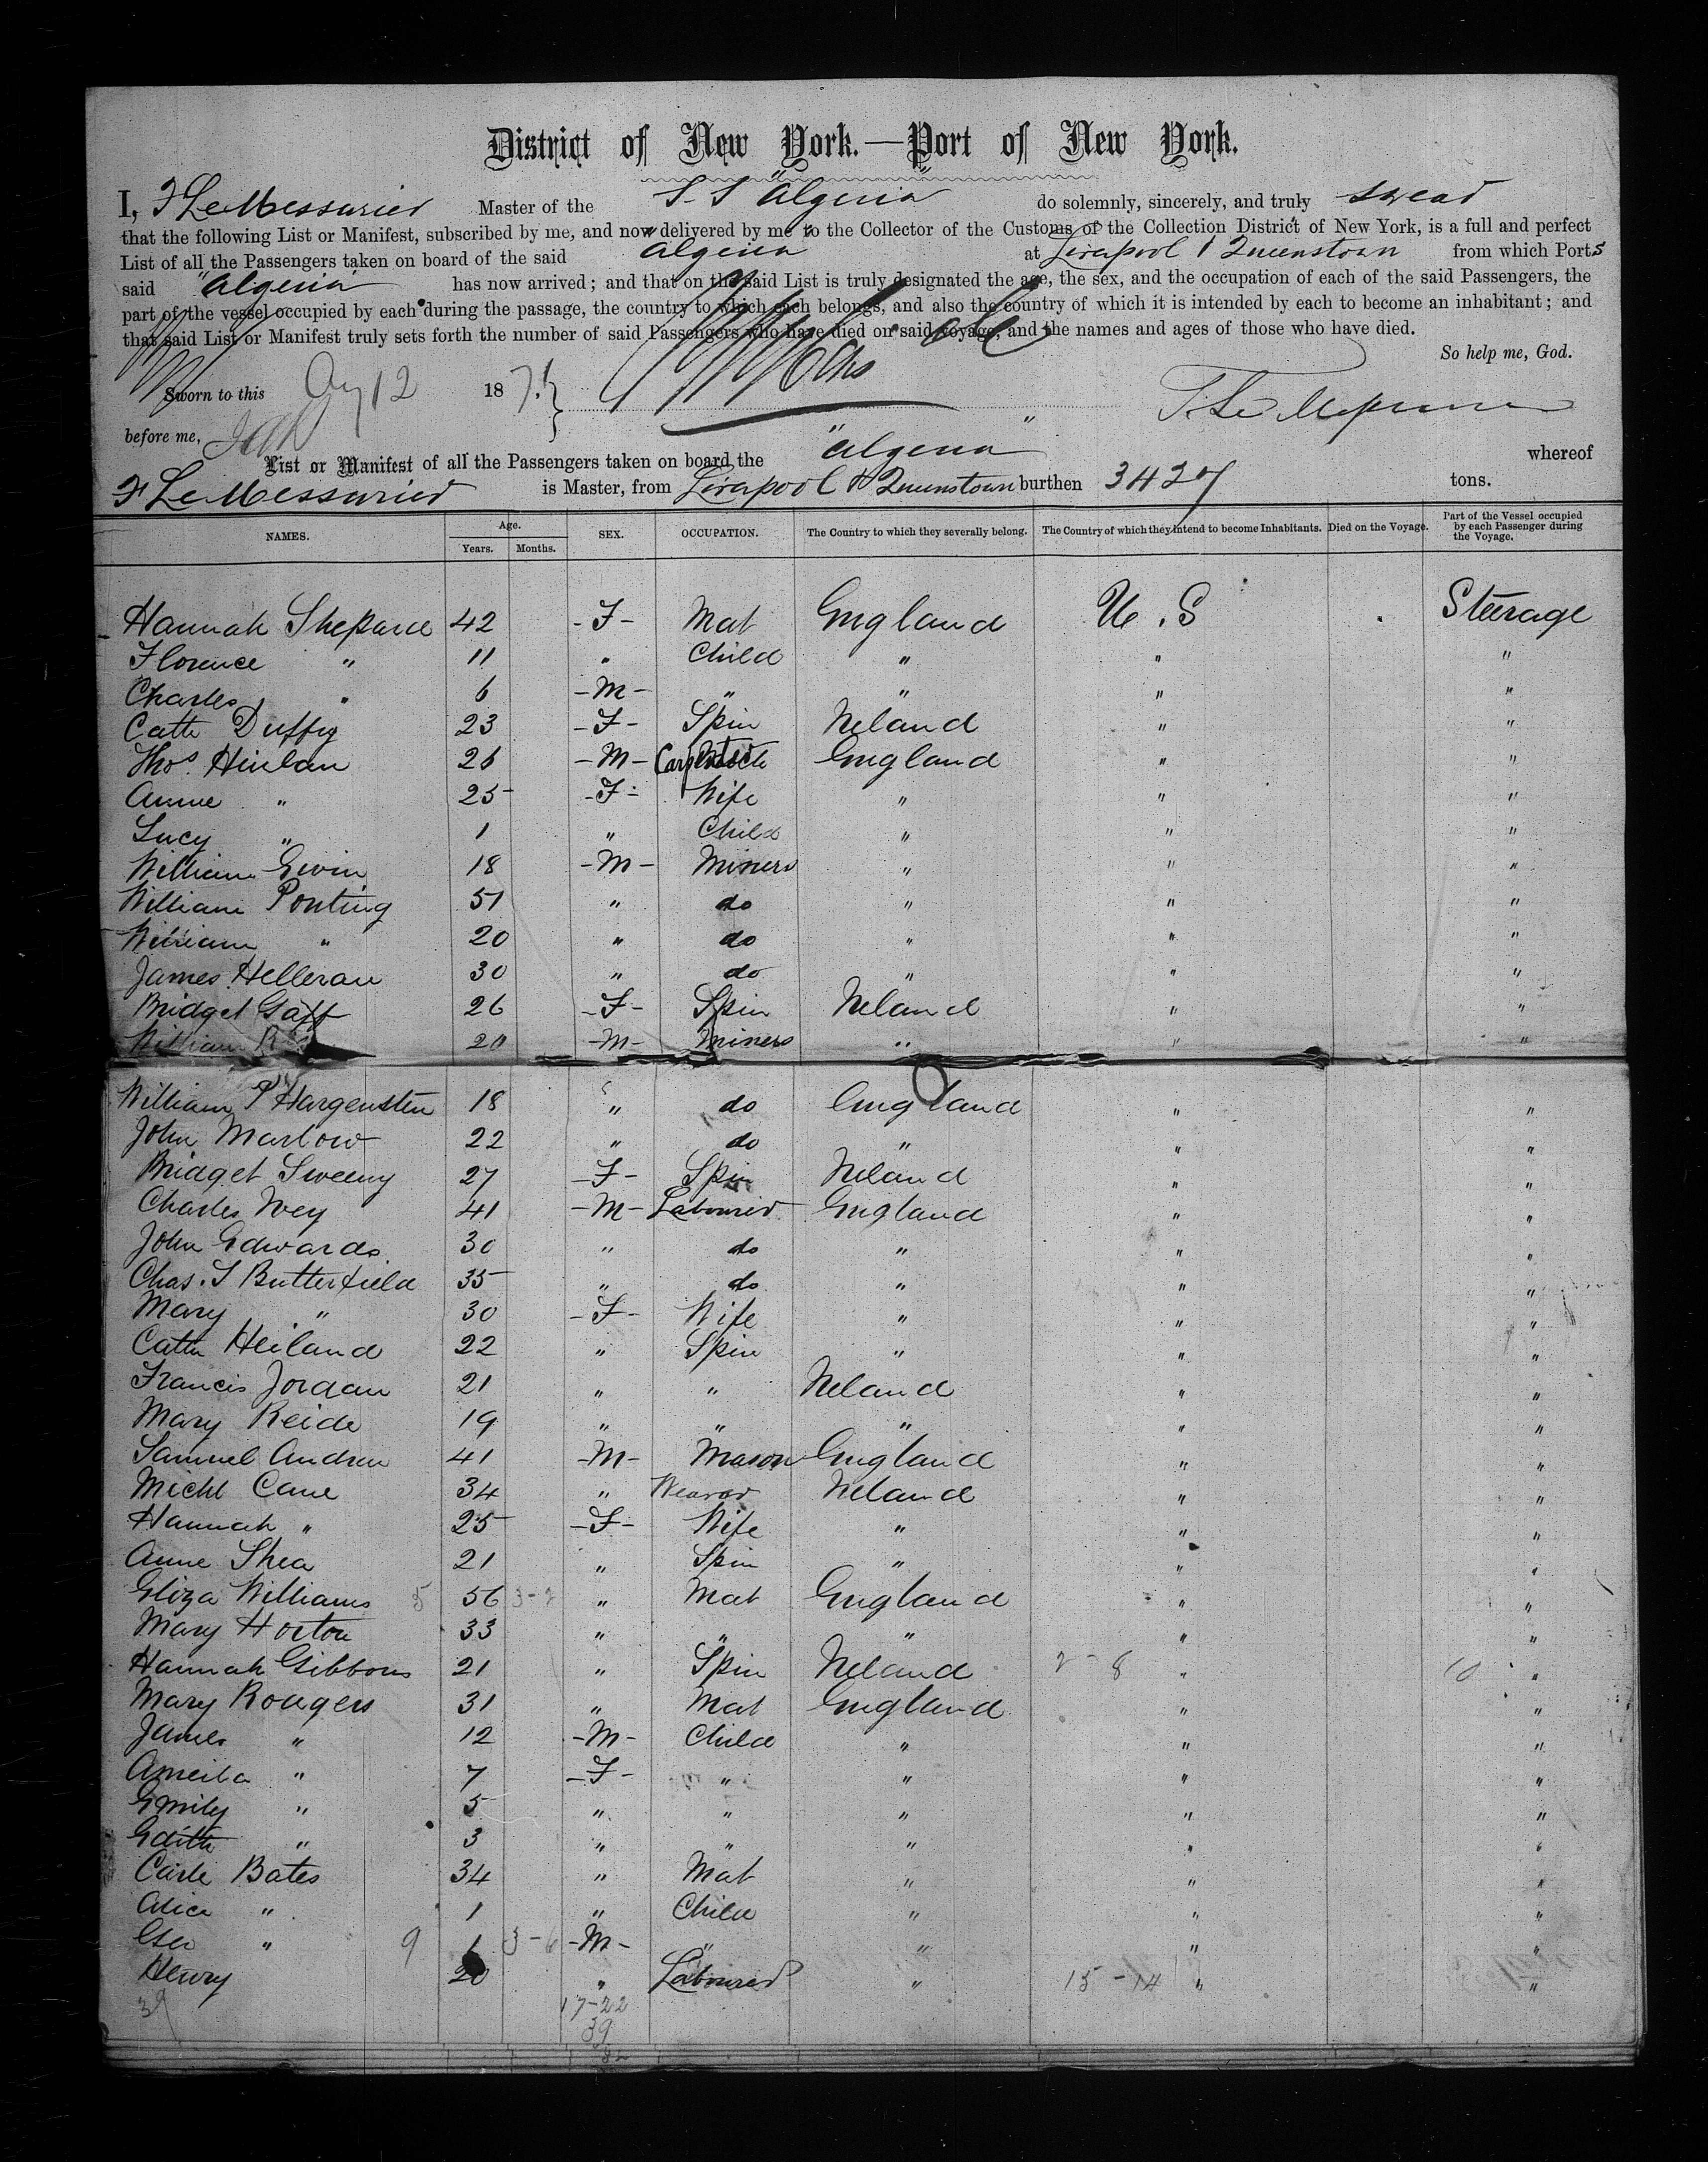 District of New York.—Port of New York.
I, F LeMessurier Master of the S.S "Algeria" do solemnly, sincerely, and truly swear
that the following List or Manifest, subscribed by me, and now delivered by me to the Collector of the Customs of the Collection District of New York, is a full and perfect
List of all the Passengers taken on board of the said "Algeria" at Liverpool & Queenstown from which Ports
said "Algeria" has now arrived; and that on the said List is truly designated the age, the sex, and the occupation of each of the said Passengers, the
part of the vessel occupied by each during the passage, the country to which each belongs, and also the country of which it is intended by each to become an inhabitant; and
that said List or Manifest truly sets forth the number of said Passengers who have died on said voyage, and the names and ages of those who have died.
So help me, God.
Sworn to this Aug 12 187
before me,
List or Manifest of all the Passengers taken on board the "Algeria" whereof
F LeMessurier is Master, from Liverpool & Queenstown burthen 3427 tons.
NAMES. Age. Years. Months. SEX. OCCUPATION. The Country to which they severally belong. The Country of which they intend to become Inhabitants. Died on the Voyage. Part of the Vessel occupied by each Passenger during the Voyage.
Hannah Shepard 42 -F- Mat England U.S Steerage
Florence " 11 " Child " " "
Charles " 6 -M- " " " "
Cath Duffy 23 -F- Spin Ireland " "
Thos. Hinlan 26 -M- England " "
Annie " 25 -F- Wife " " "
Lucy " 1 " Child " " "
William Ewin 18 -M- Miners " " "
William Ponting 51 " do " " "
William " 20 " do " " "
James Helleran 30 " do " " "
Bridget Gaff 26 -F- Spin Ireland " "
William 20 -M- Miners " " "
William P Hargensten 18 " do England " "
John Marlow 22 " do " " "
Bridget Sweeny 27 -F- Spin Ireland " "
Charles Ivey 41 -M- Labourer England " "
John Edwards 30 " do " " "
Chas. T Butterfield 35 " do " " "
Mary " 30 -F- Wife " " "
Cath Heiland 22 " Spin " " "
Francis Jordan 21 " " Ireland " "
Mary Reide 19 " " " " "
Samuel Andrew 41 -M- Mason England " "
Michl Cane 34 " Weaver Ireland " "
Hannah " 25 -F- Wife " " "
Anne Shea 21 " Spin " " "
Eliza Williams 5 56 " Mat England " "
Mary Horton 33 " " " " "
Hannah Gibbons 21 " Spin Ireland 2-8 " 10 "
Mary Rodgers 31 " Mat England " "
James " 12 -M- Child " " "
Ameila " 7 -F- " " " "
Emily " 5 " " " " "
Edith " 3 " " " " "
Carle Bates 34 " Mat " " "
Alice " 1 " Child " " "
Geo " 9 1 3-6 -M- " " " "
Henry 20 " Labourer " 15-14 " "
39 17-22
39